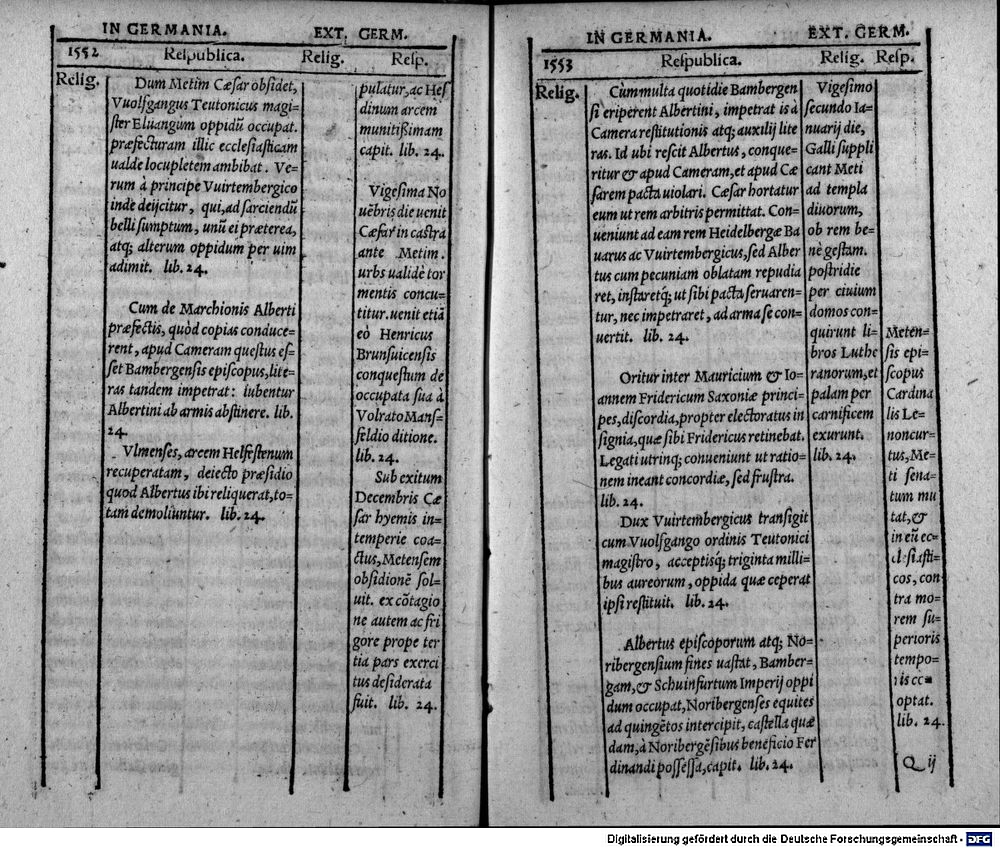 IN GERMANIA. EXT. GERM.
1552 Respublica. Relig. Resp.
Relig.
Dum Metim Cæsar obsidet,
Vuolfgangus Teutonicus magi=
ster Eluangum oppidū occupat.
præfecturam illic ecclesiasticam
ualde locupletem ambibat. Ve=
rum à principe Vuirtembergico
inde deijcitur, qui, ad sarciendū
belli sumptum, unū ei præterea,
atq; alterum oppidum per uim
adimit. lib. 24.
Cum de Marchionis Alberti
præfectis, quòd copias conduce=
rent, apud Cameram questus es=
set Bambergensis episcopus, lite=
ras tandem impetrat: iubentur
Albertini ab armis abstinere. lib.
24.
Vlmenses, arcem Helfestenum
recuperatam, deiecto præsidio
quod Albertus ibi reliquerat, to=
tam demoliuntur. lib. 24.
pulatur, ac Hes
dinum arcem
munitißimam
capit. lib. 24.
Vigesima No
uēbris die uenit
Cæsar in castra
ante Metim.
urbs ualidè tor
mentis concu=
titur. uenit etiā
eò Henricus
Brunsuicensis
conquestum de
occupata sua à
Volrato Mans=
feldio ditione.
lib. 24.
Sub exitum
Decembris Cæ
sar hyemis in=
temperie coa=
ctus, Metensem
obsidionē sol=
uit. ex cōtagio
ne autem ac fri
gore prope ter
tia pars exerci
tus desiderata
fuit. lib. 24.
IN GERMANIA. EXT. GERM.
1553 Respublica. Relig. Resp.
Relig.
Cùm multa quotidie Bambergen
si eriperent Albertini, impetrat is à
Camera restitutionis atq; auxilij lite
ras. Id ubi rescit Albertus, conque=
ritur & apud Cameram, et apud Cæ
sarem pacta uiolari. Cæsar hortatur
eum ut rem arbitris permittat. Con=
ueniunt ad eam rem Heidelbergæ Ba
uarus ac Vuirtembergicus, sed Alber
tus cum pecuniam oblatam repudia
ret, instaretq; ut sibi pacta seruaren=
tur, nec impetraret, ad arma se con=
uertit. lib. 24.
Oritur inter Mauricium & Io=
annem Fridericum Saxoniæ princi=
pes, discordia, propter electoratus in
signia, quæ sibi Fridericus retinebat.
Legati utrinq; conueniunt ut ratio=
nem ineant concordiæ, sed frustra.
lib. 24.
Dux Vuirtembergicus transigit
cum Vuolfgango ordinis Teutonici
magistro, acceptisq; triginta milli=
bus aureorum, oppida quæ ceperat
ipsi restituit. lib. 24.
Albertus episcoporum atq; No=
ribergensium fines uastat, Bamber=
gam, & Schuinfurtum Imperij oppi
dum occupat, Noribergenses equites
ad quingētos intercipit, castella quæ
dam, à Noribergēsibus beneficio Fer
dinandi possessa, capit. lib. 24.
Vigesimo
secundo Ia=
nuarij die,
Galli suppli
cant Meti
ad templa
diuorum,
ob rem be=
nè gestam.
postridie
per ciuium
domos con=
quirunt li=
bros Luthe
ranorum, et
palam per
carnificem
exurunt.
lib. 24.
Meten=
sis epi=
scopus
Cardina
lis Le=
noncur=
tus, Me=
ti sena=
tum mu
tat, &
in eū ec=
clesiasti=
cos, con
tra mo=
rem su=
perioris
tempo=
ris co=
optat.
lib. 24.
Q ij
Digitalisierung gefördert durch die Deutsche Forschungsgemeinschaft - DFG